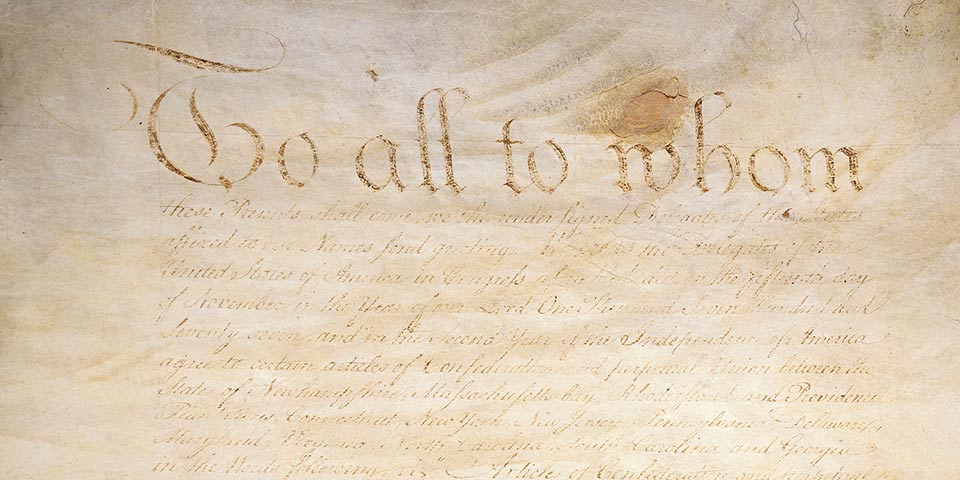 To all to whom
these Presents shall come, we the under signed Delegates of the States
affixed to our Names send greeting. Whereas the Delegates of the
United States of America in Congress assembled did on the fifteenth day
of November in the Year of our Lord One Thousand Seven Hundred and
Seventy seven, and in the Second Year of the Independence of America
agree to certain articles of Confederation and perpetual Union between the
States of Newhampshire, Massachusetts-bay, Rhodeisland and Providence
Plantations, Connecticut, New York, New Jersey, Pennsylvania, Delaware,
Maryland, Virginia, North-Carolina, South-Carolina and Georgia
in the Words following, viz. "Articles of Confederation and perpetual